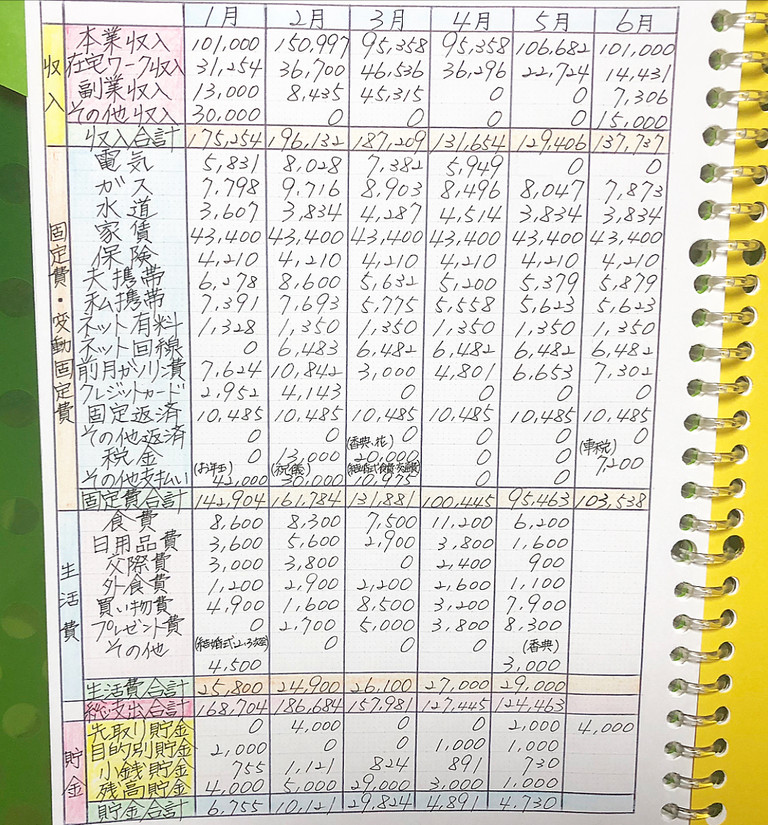 1月 2月 3月 4月 5月 6月
収入
本業収入 101,000 150,997 95,358 95,358 106,682 101,000
在宅ワーク収入 31,254 36,700 46,536 36,296 22,724 14,431
副業収入 13,000 8,435 45,315 0 0 7,306
その他収入 30,000 0 0 0 0 15,000
収入合計 175,254 196,132 187,209 131,654 129,406 137,737
固定費・変動固定費
電気 5,831 8,028 7,382 5,949 0 0
ガス 7,798 9,716 8,903 8,496 8,047 7,873
水道 3,607 3,834 4,287 4,514 3,834 3,834
家賃 43,400 43,400 43,400 43,400 43,400 43,400
保険 4,210 4,210 4,210 4,210 4,210 4,210
夫携帯 6,278 8,600 5,632 5,200 5,379 5,879
私携帯 7,391 7,693 5,775 5,558 5,623 5,623
ネット有料 1,328 1,350 1,350 1,350 1,350 1,350
ネット回線 0 6,483 6,482 6,482 6,482 6,482
前月ガソリン費 7,624 10,842 3,000 4,801 6,653 7,302
クレジットカード 2,952 4,143 0 0 0 0
固定返済 10,485 10,485 10,485 10,485 10,485 10,485
その他返済 0 0 0 0 0 0
税金 0 13,000 (香典、花) 20,000 0 0 (車税) 7,200
その他支払い (お年玉) 42,000 (祝儀) 30,000 10,975 0 0
固定費合計 142,904 161,784 131,881 100,445 95,463 103,538
生活費
食費 8,600 8,300 7,500 11,200 6,200
日用品費 3,600 5,600 2,900 3,800 1,600
交際費 3,000 3,800 0 2,400 900
外食費 1,200 2,900 2,200 2,600 1,100
買い物費 4,900 1,600 8,500 3,200 7,900
プレゼント費 0 2,700 5,000 3,800 8,300
その他 (結婚式2,3次会) 4,500 0 0 0 (香典) 3,000
生活費合計 25,800 24,900 26,100 27,000 29,000
総支出合計 168,704 186,684 157,981 127,445 124,463
貯金
先取り貯金 0 4,000 0 0 2,000 4,000
目的別貯金 2,000 0 0 1,000 1,000
小銭貯金 755 1,121 824 891 730
残高貯金 4,000 5,000 29,000 3,000 1,000
貯金合計 6,755 10,121 29,824 4,891 4,730